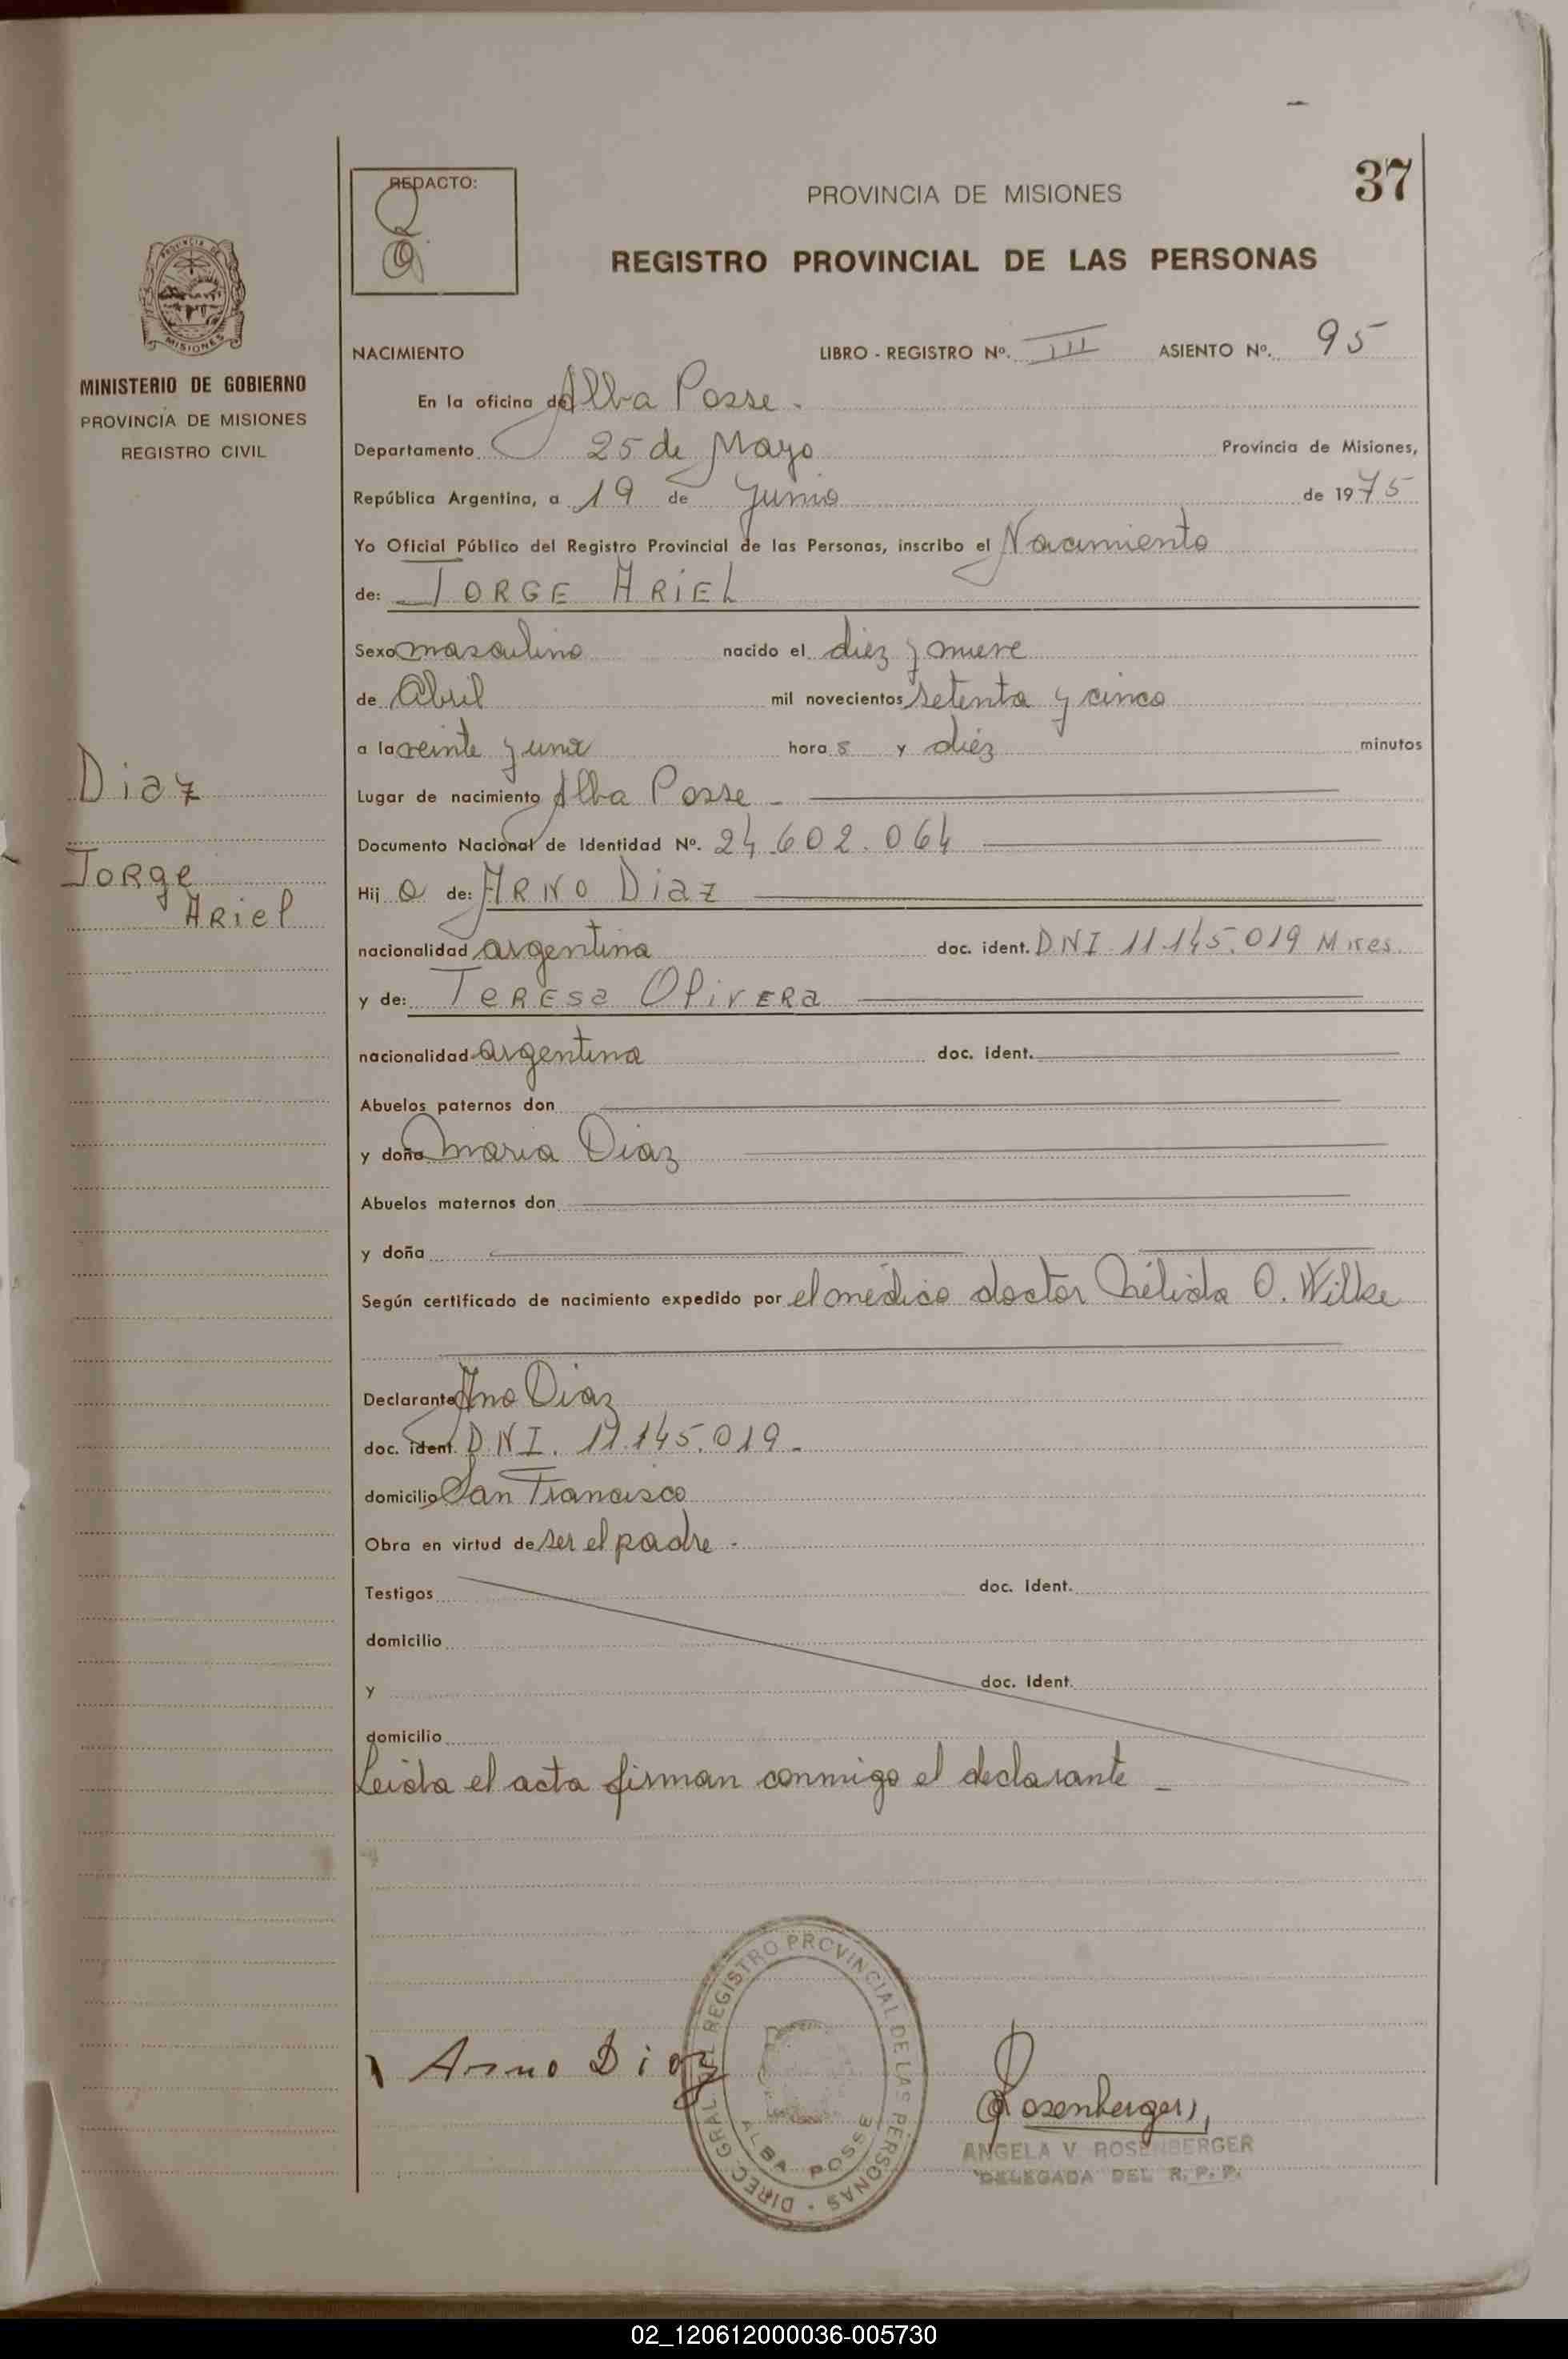 37
REDACTO:
PROVINCIA DE MISIONES
REGISTRO PROVINCIAL DE LAS PERSONAS
MISIONES
MINISTERIO DE GOBIERNO
PROVINCIA DE MISIONES
REGISTRO CIVIL
Diaz
Jorge
Ariel
NACIMIENTO LIBRO - REGISTRO Nº. III ASIENTO Nº. 95
En la oficina de Alba Posse.
Departamento 25 de Mayo Provincia de Misiones,
República Argentina, a 19 de Junio de 1975
Yo Oficial Público del Registro Provincial de las Personas, inscribo el Nacimiento
de: JORGE ARIEL
Sexo masculino nacido el diez y nueve
de Abril mil novecientos setenta y cinco
a la veinte y una hora s y diéz minutos
Lugar de nacimiento Alba Posse -
Documento Nacional de Identidad Nº. 24.602.064
Hij o de: ARNO Diaz
nacionalidad argentina doc. ident. D.N.I. 11.145.019 Mnes.
y de: TeRESa OlivERa
nacionalidad argentina doc. ident.
Abuelos paternos don
y doña Maria Diaz
Abuelos maternos don
y doña
Según certificado de nacimiento expedido por el médico doctor Nélida O. Wilke
Declarante Arno Diaz
doc. ident. D.N.I. 11.145.019.
domicilio San Francisco
Obra en virtud de ser el padre.
Testigos doc. Ident.
domicilio
y doc. Ident.
domicilio
Leida el acta firman conmigo el declarante -
Arno Diaz
DIREC. GRAL. DEL REGISTRO PROVINCIAL DE LAS PERSONAS
ALBA POSSE
Rosenberger
ANGELA V. ROSENBERGER
DELEGADA DEL R. P. P.
02_120612000036-005730